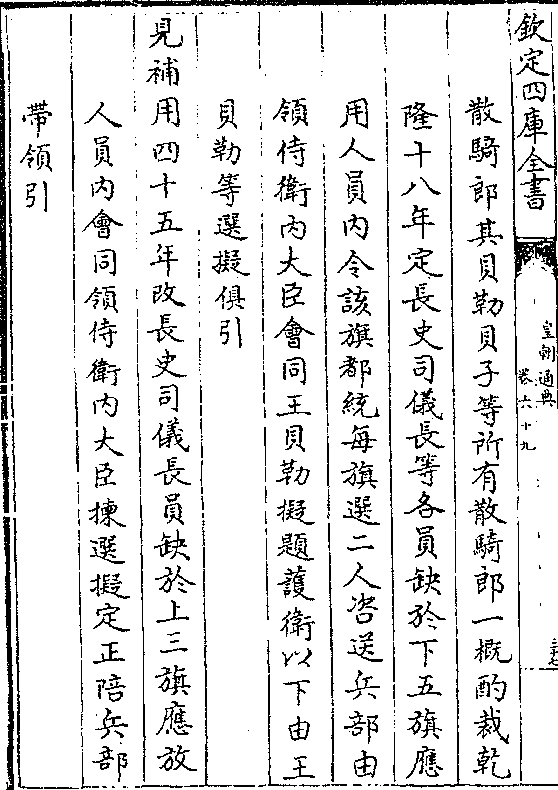 欽定四庫全書
皇朝通典
卷六十九
散騎郎其貝勒貝子等所有散騎郎一概酌裁乾
隆十八年定長史司儀長等各員缺於下五旗應
用人員内令該旗都統每旗選二人咨送兵部由
領侍衛内大臣會同王貝勒擬題護衛以下由王
貝勒等選擬俱引
見補用四十五年改長史司儀長員缺於上三旗應放
人員内會同領侍衛内大臣揀選擬定正陪兵部
帶領引